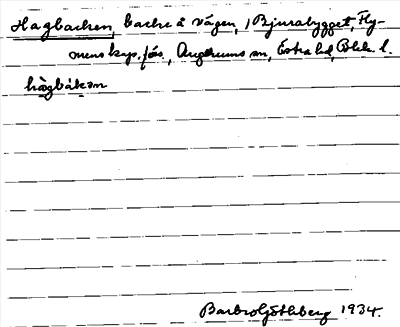 Hagbacken, backe å vägen, i Bjurabygget, Fly-
mens kap. förs., Augerums sn, Östra hd, Blek. l.
hàgbàkən
Barbro Götheberg 1934.